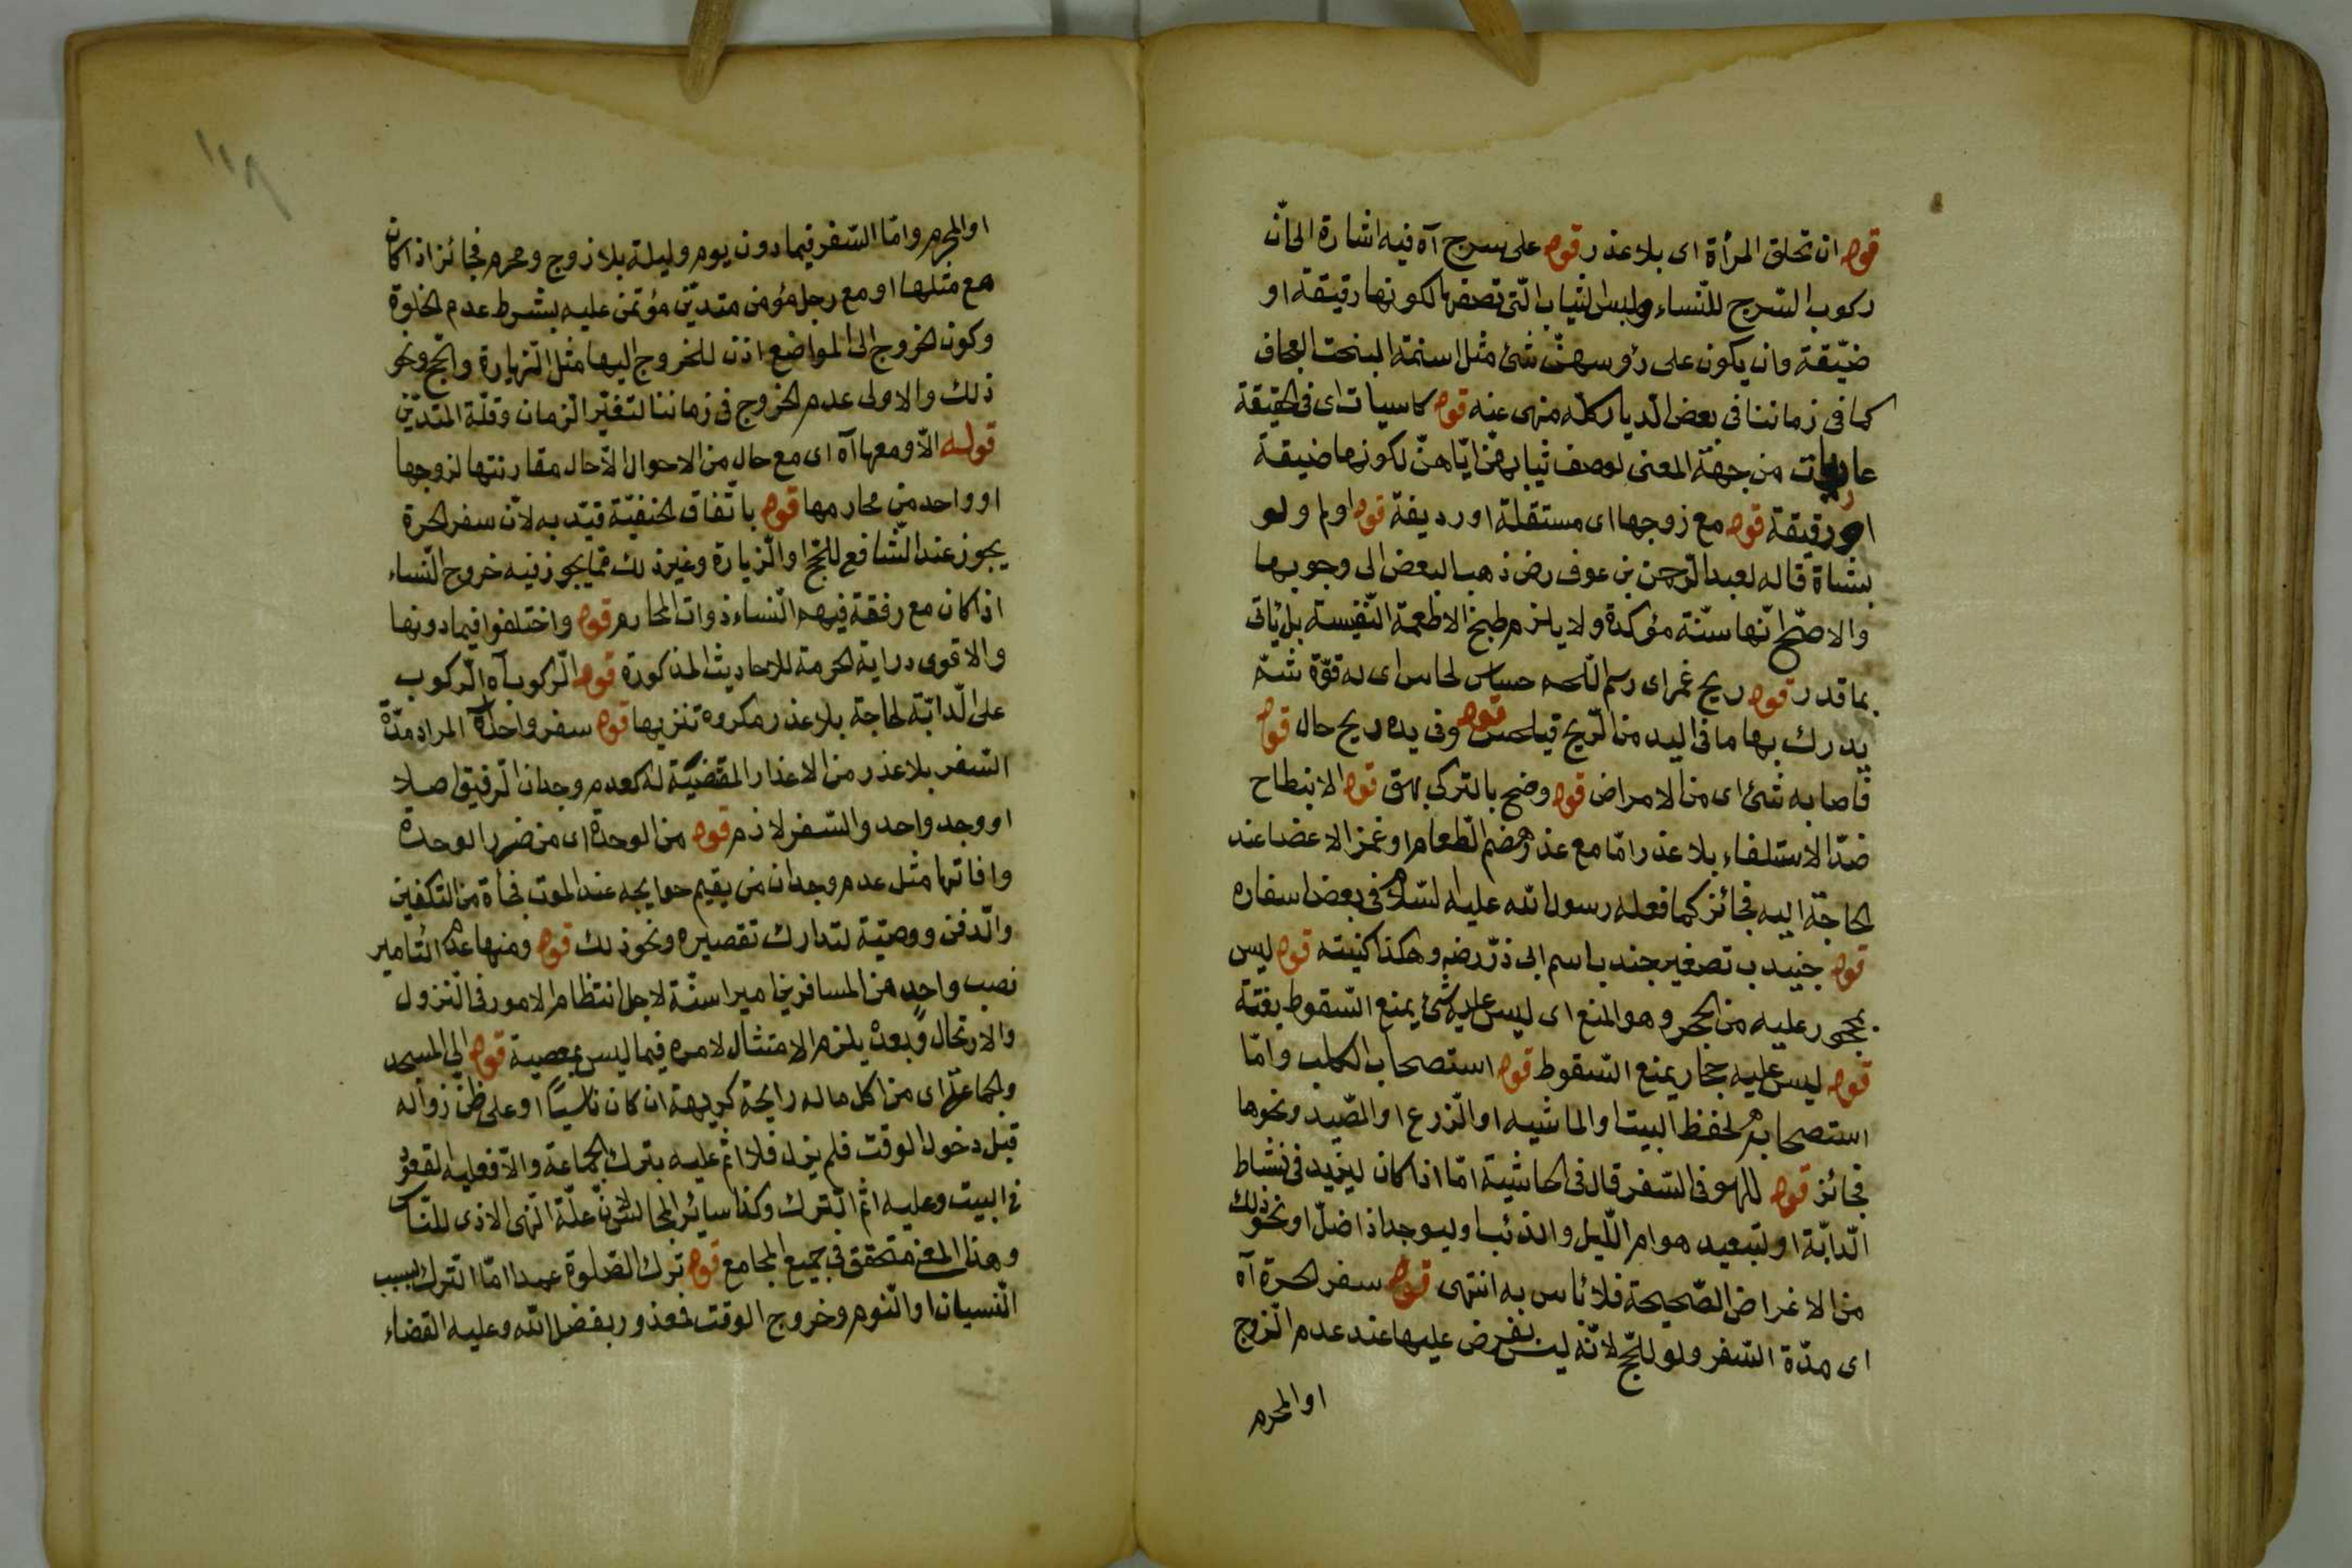 قوله ان تحلق المرأة اى بلا عذر قوله على سرج آه فيه اشارة الى انّ
ركوب السّرج للنّساء ولبس الثياب الّتى تصفها لكونها رقيقة او
ضيّقة وان يكون على رؤسهنّ شئ مثل اسنمة البخت العجاف
كما فى زماننا فى بعض الدّيار كلّه منهى عنه قوله كاسيات اى فى الحقيقة
عاريات من جهة المعنى لوصف ثيابهنّ ايّاهنّ لكونها ضيقة
او رقيقة قوله مع زوجها اى مستقلة او رديفة قوله اولم ولو
بشاة قاله لعبد الرّحمن بن عوف رض ذهب البعض الى وجوبها
والاصحّ انّها سنّة مؤكدة ولا يلزم طبخ الاطعمة النّفيسة بل يأتى
بما قدر قوله ريح غمر اى رسم اللّحم حساس لحاس اى له قوّة شمّ
يدرك بها ما فى اليد من الرّيح فيلحس قوله وفى يده ريح حال قوله
فاصابه شئ اى من الامراض قوله وضح بالتركى بهق قوله الانبطاح
ضدّ الاستلقاء بلا عذر امّا مع عذر وهضم الطّعام او غمز الاعضا عند
الحاجة اليه فجائز كما فعله رسول الله عليه السّلام فى بعض اسفاره
قوله جنيدب تصغير جندب اسم ابى ذرّ رضه وهكذا كنيته قوله ليس
بمحجور عليه من الحجر وهو المنع اى ليس عليه شئ يمنع السّقوط بغتة
قوله ليس عليه حجار يمنع السّقوط قوله استصحاب الكلب وامّا
استصحابه لحفظ البيت او الماشيه او الزّرع او الصّيد ونحوها
فجائز قوله للهو فى السّفر قال فى الحاشية امّا اذا كان ليزيد فى نشاط
الدّابّة او لتبعيد هوام اللّيل والذئب او ليوجد اذا ضلّ او نحو ذلك
من الاغراض الصّحيحة فلا بأس به انتهى قوله سفر الحرة آه
اى مدّة السّفر ولو للحجّ لانّه ليس بفرض عليها عند عدم الزّوج
او المحرم
١١٩
او المحرم وامّا السّفر فيما دون يوم وليلة بلا زوج ومحرم فجائز اذا كان
مع مثلها او مع رجل مؤمن متديّن مؤتمن عليه بشرط عدم الخلوة
وكون الخروج الى المواضع اذن للخروج اليها مثل الزّيارة والحج ونحو
ذلك والاولى عدم الخروج فى زماننا لتغيّر الزّمان وقلّة المتديّن
قوله الّا ومعها آه اى مع حال من الاحوال الّا حال مقارنتها لزوجها
او واحد من محارمها قوله باتّفاق الحنفيّة قيّد به لانّ سفر الحرة
يجوز عند الشّافع للحجّ او الزّيارة وغير ذلك ممّا يجوز فيه خروج النّساء
اذا كان مع رفقة فيهم النّساء ذوات المحارم قوله واختلفوا فيما دونها
والاقوى دراية الحرمة للاحاديث المذكورة قوله الرّكوب آه الرّكوب
على الدّابّة لحاجة بلا عذر مكروه تنزيها قوله سفر واحد آه المراد مدّة
السّفر بلا عذر من الاعذار المقتضية له كعدم وجدان الرّفيق اصلا
او وجد واحد والسّفر لازم قوله من الوحدة اى من ضرر الوحدة
وافاتها مثل عدم وجدان من يقيم حوايجه عند الموت فجأة من التكفين
والدّفن ووصيّة لتدارك تقصيره ونحو ذلك قوله ومنها عدم التّأمير
نصب واحد من المسافرين اميرا سنّة لاجل انتظام الامور فى النّزول
والارتحال وبعده يلزم الامتثال لامره فيما ليس بمعصية قوله الى المسجد
والجماعة اى من اكل ماله رايحة كريهة ان كان ناسيًا او على ظنّ زواله
قبل دخول الوقت فلم يزل فلا اثم عليه بترك الجماعة والّا فعليه القعود
فى البيت وعليه اثم التّرك وكذا سائر المجالس لانّ علّة النّهى الاذى للنّاس
وهذا المعنى متحقق فى جميع المجامع قوله ترك الصّلوة عمدا امّا الترك بسبب
النّسيان او النّوم وخروج الوقت فمعذور بفضل الله وعليه القضاء